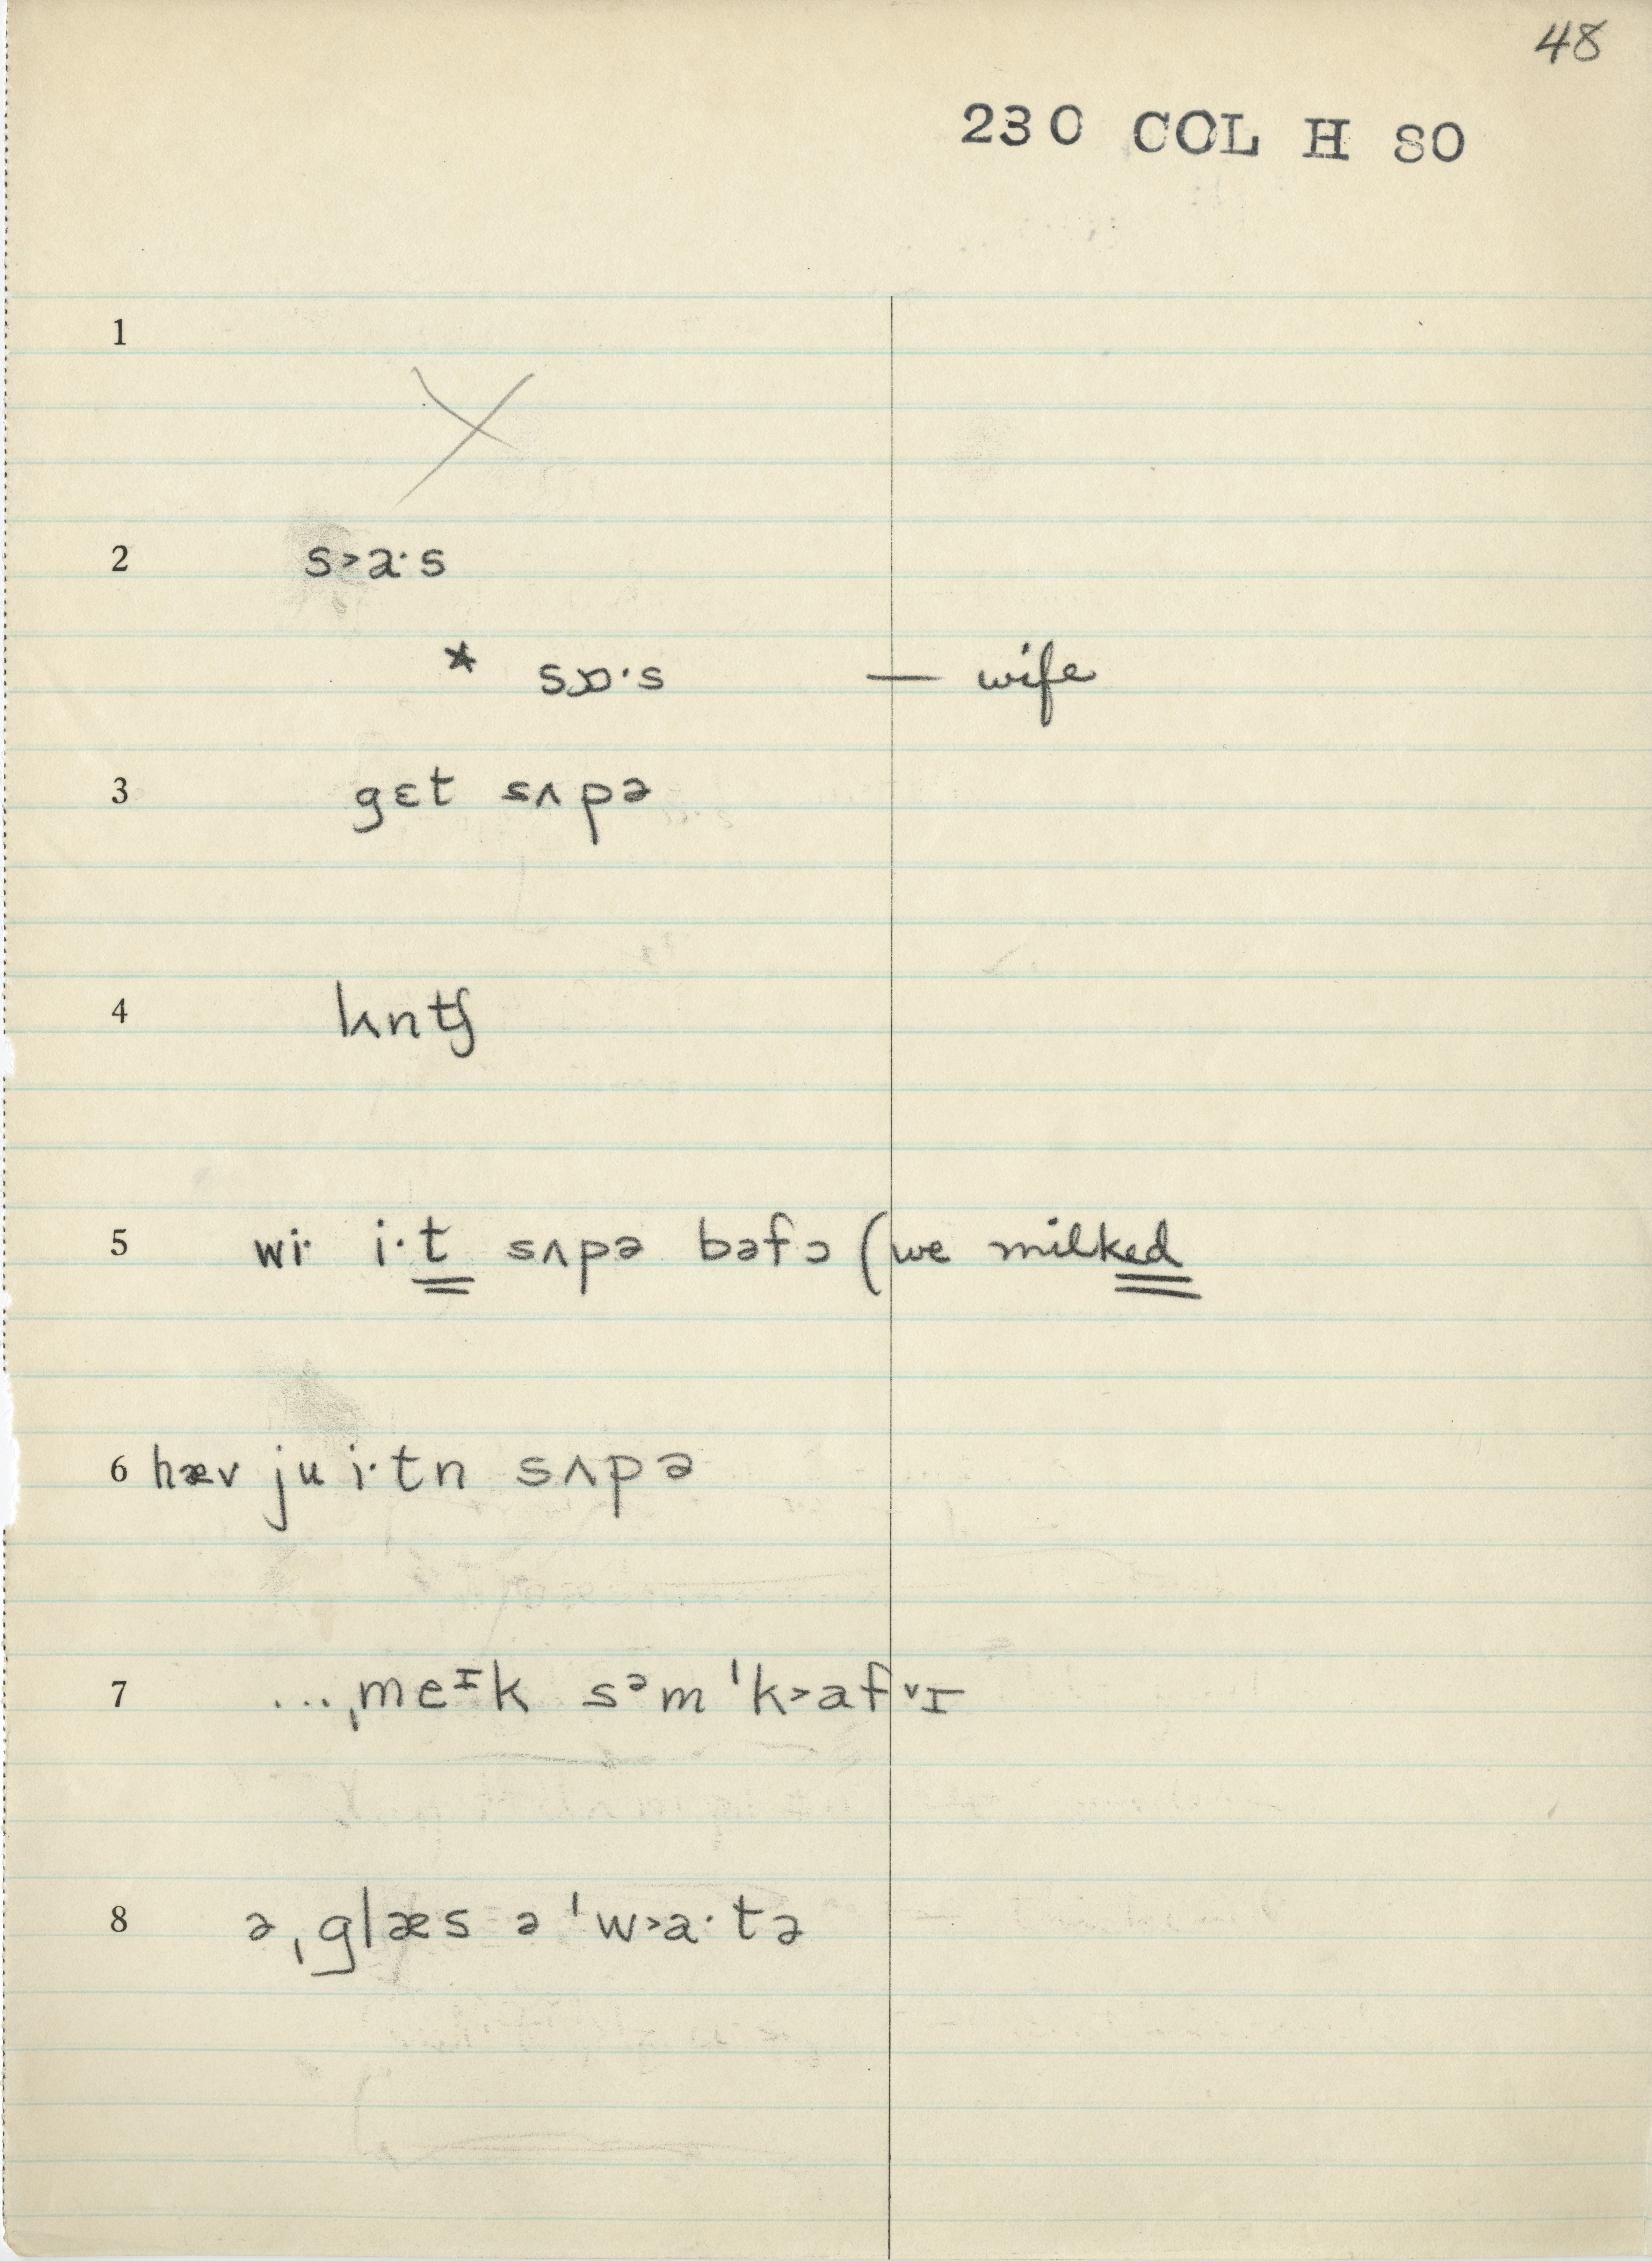 48
230 COL H 80
1
X
2 s˃a·s
* sɒ·s — wife
3 gɛt sʌpə
4 lʌntʃ
5 wi· i·t sʌpə bəfɔ (we milked
6 hæv ju i·tn sʌpə
7 ...ˌmeᶦk sᵊm ˈk˃af˅ɪ
8 ə ˌglæs ə ˈw˃a·tə